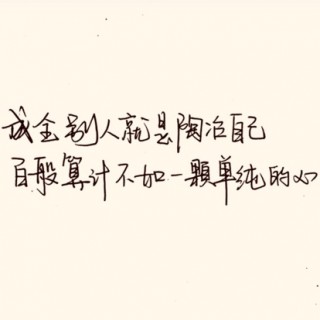 成全别人就是陶冶自己
百般算计不如一顆单纯的心